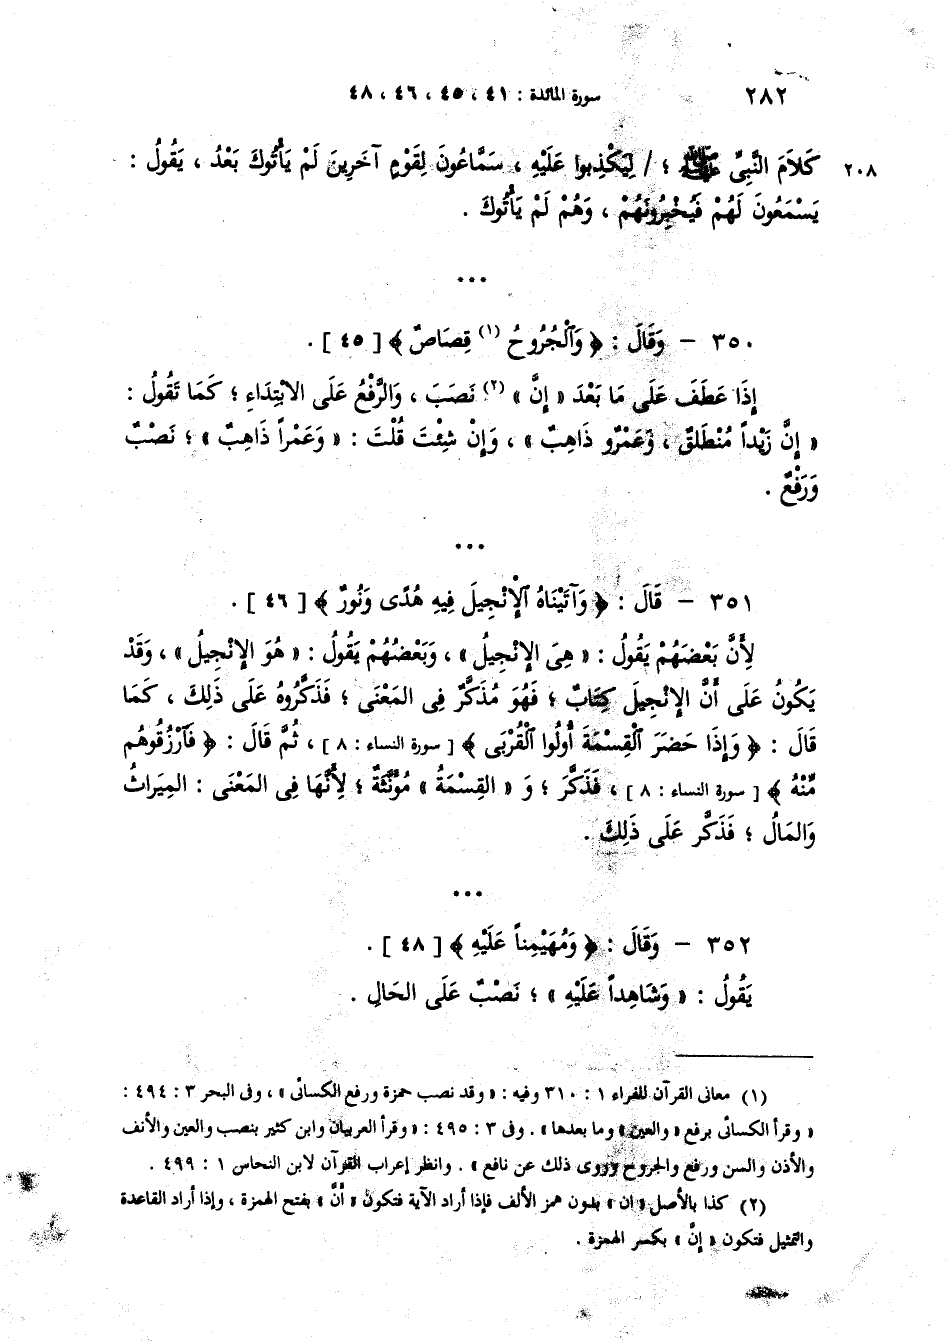 ٢٨٢ سورة المائدة : ٤١ ، ٤٥ ، ٤٦ ، ٤٨
٢٠٨ كَلاَمَ النَّبِىِّ ﷺ ؛ / لِيَكْذِبوا عَلَيْهِ ، سَمَّاعُونَ لِقَوْمٍ آخَرِينَ لَمْ يَأْتُوكَ بَعْدُ ، يَقُولُ :
يَسْمَعُونَ لَهُمْ فَيُخْبِرُونَهُمْ ، وَهُمْ لَمْ يَأْتُوكَ .
•••
٣٥٠ – وَقَالَ : ﴿ وَٱلْجُرُوحُ (١) قِصَاصٌ ﴾ [ ٤٥ ] .
إِذَا عَطَفَ عَلَى مَا بَعْدَ « إِنَّ » (٢) نَصَبَ ، وَالرَّفْعُ عَلَى الابْتِدَاءِ ؛ كَمَا تَقُولُ :
« إِنَّ زَيْداً مُنْطَلِقٌ ، وَعَمْرٌو ذَاهِبٌ » ، وَإِنْ شِئْتَ قُلْتَ : « وَعَمْراً ذَاهِبٌ » ؛ نَصْبٌ
وَرَفْعٌ .
•••
٣٥١ – قَالَ : ﴿ وَآتَيْنَاهُ ٱلْإِنْجِيلَ فِيهِ هُدًى وَنُورٌ ﴾ [ ٤٦ ] .
لِأَنَّ بَعْضَهُمْ يَقُولُ : « هِىَ الإِنْجِيلُ » ، وَبَعْضُهُمْ يَقُولُ : « هُوَ الإِنْجِيلُ » ، وَقَدْ
يَكُونُ عَلَى أَنَّ الإِنْجِيلَ كِتَابٌ ؛ فَهُوَ مُذَكَّرٌ فِى المَعْنَى ؛ فَذَكَّرُوهُ عَلَى ذَلِكَ ، كَمَا
قَالَ : ﴿ وَإِذَا حَضَرَ ٱلْقِسْمَةَ أُولُوا ٱلْقُرْبَى ﴾ [ سورة النساء : ٨ ] ، ثُمَّ قَالَ : ﴿ فَٱرْزُقُوهُم
مِّنْهُ ﴾ [ سورة النساء : ٨ ] ، فَذَكَّرَ ؛ وَ « القِسْمَةُ » مُؤَنَّثَةٌ ؛ لِأَنَّهَا فِى المَعْنَى : المِيَراثُ
وَالمَالُ ؛ فَذَكَّر عَلَى ذَلِكَ .
•••
٣٥٢ – وَقَالَ : ﴿ وَمُهَيْمِناً عَلَيْهِ ﴾ [ ٤٨ ] .
يَقُولُ : « وَشَاهِداً عَلَيْهِ » ؛ نَصْبٌ عَلَى الحَالِ .
(١) معانى القرآن للفراء ١ : ٣١٠ وفيه : « وقد نصب حمزة ورفع الكسائى » ، وفى البحر ٣ : ٤٩٤ :
« وقرأ الكسائى برفع « والعين » وما بعدها » . وفى ٣ : ٤٩٥ : « وقرأ العربيان وابن كثير بنصب والعين والأنف
والأذن والسن ورفع والجروح وروى ذلك عن نافع » . وانظر إعراب القرآن لابن النحاس ١ : ٤٩٩ .
(٢) كذا بالأصل « ان » بدون همز الألف فإذا أراد الآية فتكون « أَنَّ » بفتح الهمزة ، وإذا أراد القاعدة
والتمثيل فتكون « إِنَّ » بكسر الهمزة .